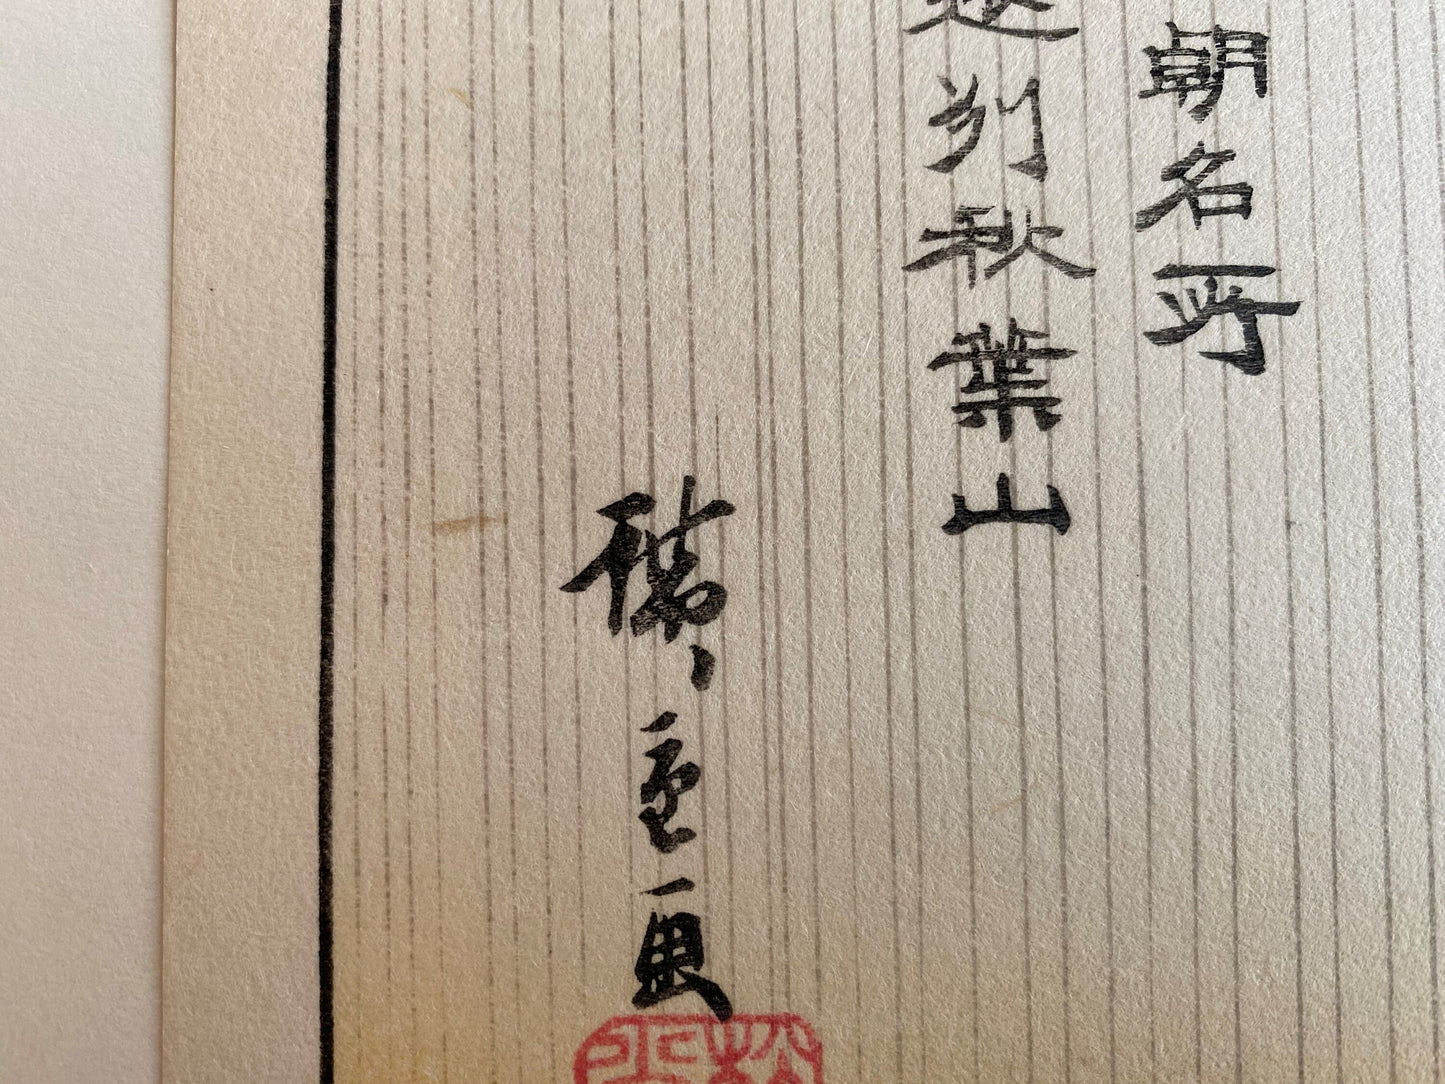 朝名所
遠州秋葉山
廣重画